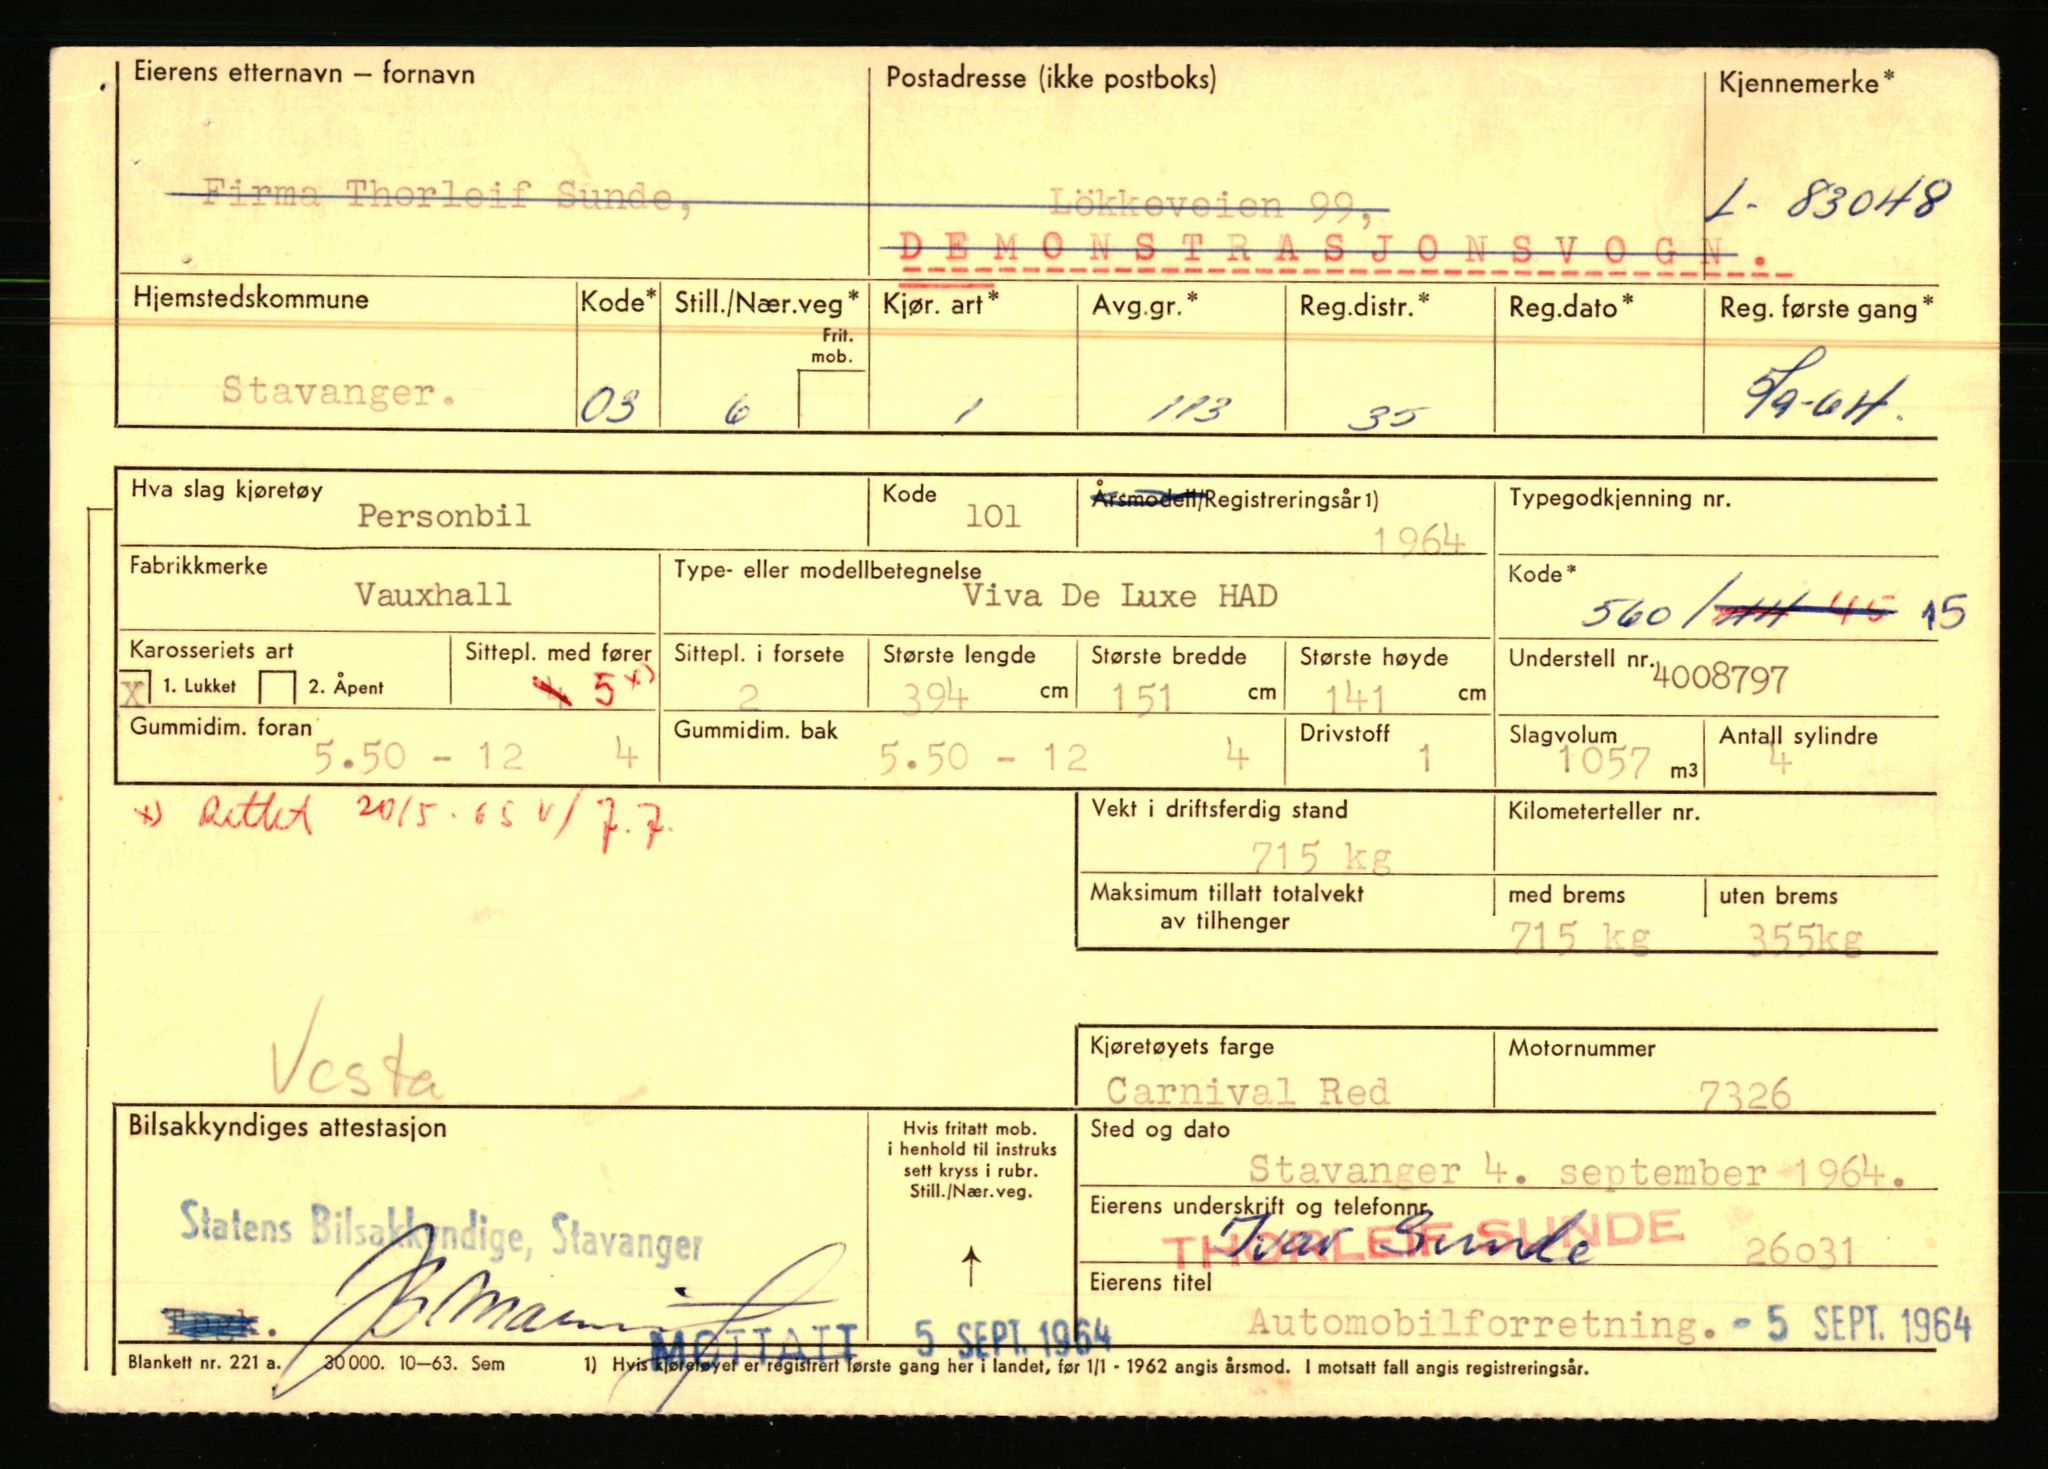 Eierens etternavn — fornavn Postadresse (ikke postboks) Kjennemerke*
Firma Thorleif Sunde, Lökkeveien 99, L- 83048
DEMONSTRASJONSVOGN.
Hjemstedskommune Kode* Still./Nær.veg* Kjør. art* Avg.gr.* Reg.distr.* Reg.dato* Reg. første gang*
Frit.
mob.
Stavanger. 03 6 1 113 35 5/9-64.
Hva slag kjøretøy Kode Årsmodell/Registreringsår 1) Typegodkjenning nr.
Personbil 101 1964
Fabrikkmerke Type- eller modellbetegnelse Kode*
Vauxhall Viva De Luxe HAD 560 / 44 45 15
Karosseriets art Sittepl. med fører Sittepl. i forsete Største lengde Største bredde Største høyde Understell nr.
X 1. Lukket 2. Åpent 4 5 x) 2 394 cm 151 cm 141 cm 4008797
Gummidim. foran Gummidim. bak Drivstoff Slagvolum Antall sylindre
5.50 - 12 4 5.50 - 12 4 1 1057 m3 4
x) Rettet 20/5-65 v/ J.J.
Vekt i driftsferdig stand Kilometerteller nr.
715 kg
Maksimum tillatt totalvekt med brems uten brems
av tilhenger
715 kg 355kg
Vesta
Kjøretøyets farge Motornummer
Carnival Red 7326
Bilsakkyndiges attestasjon
Hvis fritatt mob.
i henhold til instruks
sett kryss i rubr.
Still./Nær.veg.
Sted og dato
Stavanger 4. september 1964.
Statens Bilsakkyndige, Stavanger
Eierens underskrift og telefonnr.
THORLEIF SUNDE
Ivar Sunde 26031
Eierens titel
Automobilforretning. - 5 SEPT. 1964
MOTTATT 5 SEPT. 1964
Blankett nr. 221 a. 30000. 10—63. Sem 1) Hvis kjøretøyet er registrert første gang her i landet, før 1/1 - 1962 angis årsmod. I motsatt fall angis registreringsår.